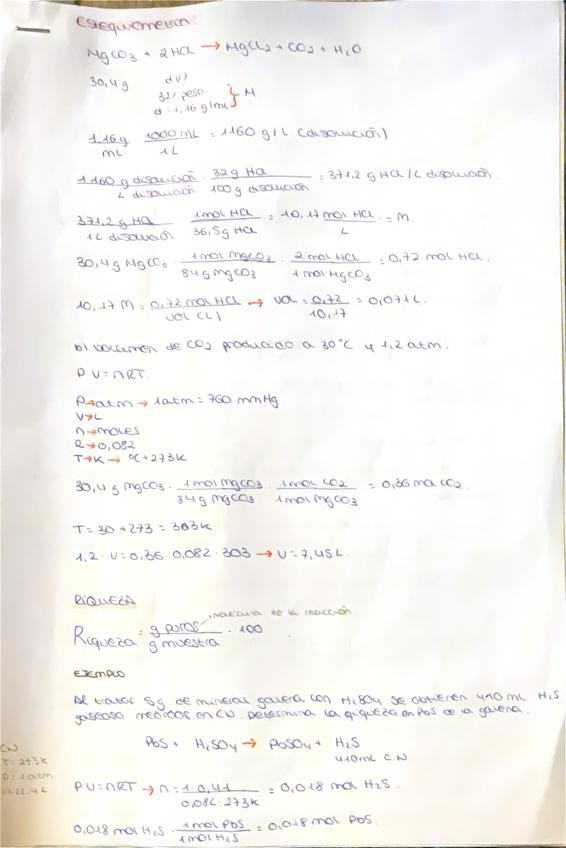 Esequiometria.
MgCO3 + 2HCl → MgCl2 + CO2 + H2O
30,4g
32% peso
d = 1,16 g/mL } M
1,16g/mL · 1000mL/1L = 1160 g/L (disolución)
1160 g disolución/L disolución · 32g HCl/100g disolución = 371,2 g HCl/L disolución.
371,2 g HCl/1L disolución · 1mol HCl/36,5g HCl = 10,17 mol HCl/L = M.
30,4g MgCO3 · 1mol MgCO3/84g MgCO3 · 2mol HCl/1mol MgCO3 = 0,72 mol HCl.
10,17 M = 0,72 mol HCl/vol (L) → vol = 0,72/10,17 = 0,071L.
b) volumen de CO2 producido a 30°C y 1,2 atm.
P V = nRT.
P→atm → 1atm = 760 mmHg
V→L
n→moles
R→0,082
T→K → °C+273K
30,4 g MgCO3 · 1mol MgCO3/84g MgCO3 · 1mol CO2/1mol MgCO3 = 0,36 mol CO2.
T = 30 + 273 = 303K
1,2 · V = 0,36 · 0,082 · 303 → V = 7,45L.
RIQUEZA
Riqueza = g puros/g muestra · 100
de la reacción
EJEMPLO
Al tratar 5g de mineral galena con H2SO4 se obtienen 410 mL H2S
gaseoso medidos en CN. Determina la riqueza en PbS de la galena.
PbS + H2SO4 → PbSO4 + H2S
410mL C.N
CN
T = 273K
P = 1atm
22,4L
PV = nRT → n = 1·0,41/0,082·273K = 0,018 mol H2S.
0,018 mol H2S · 1mol PbS/1mol H2S = 0,018 mol PbS.